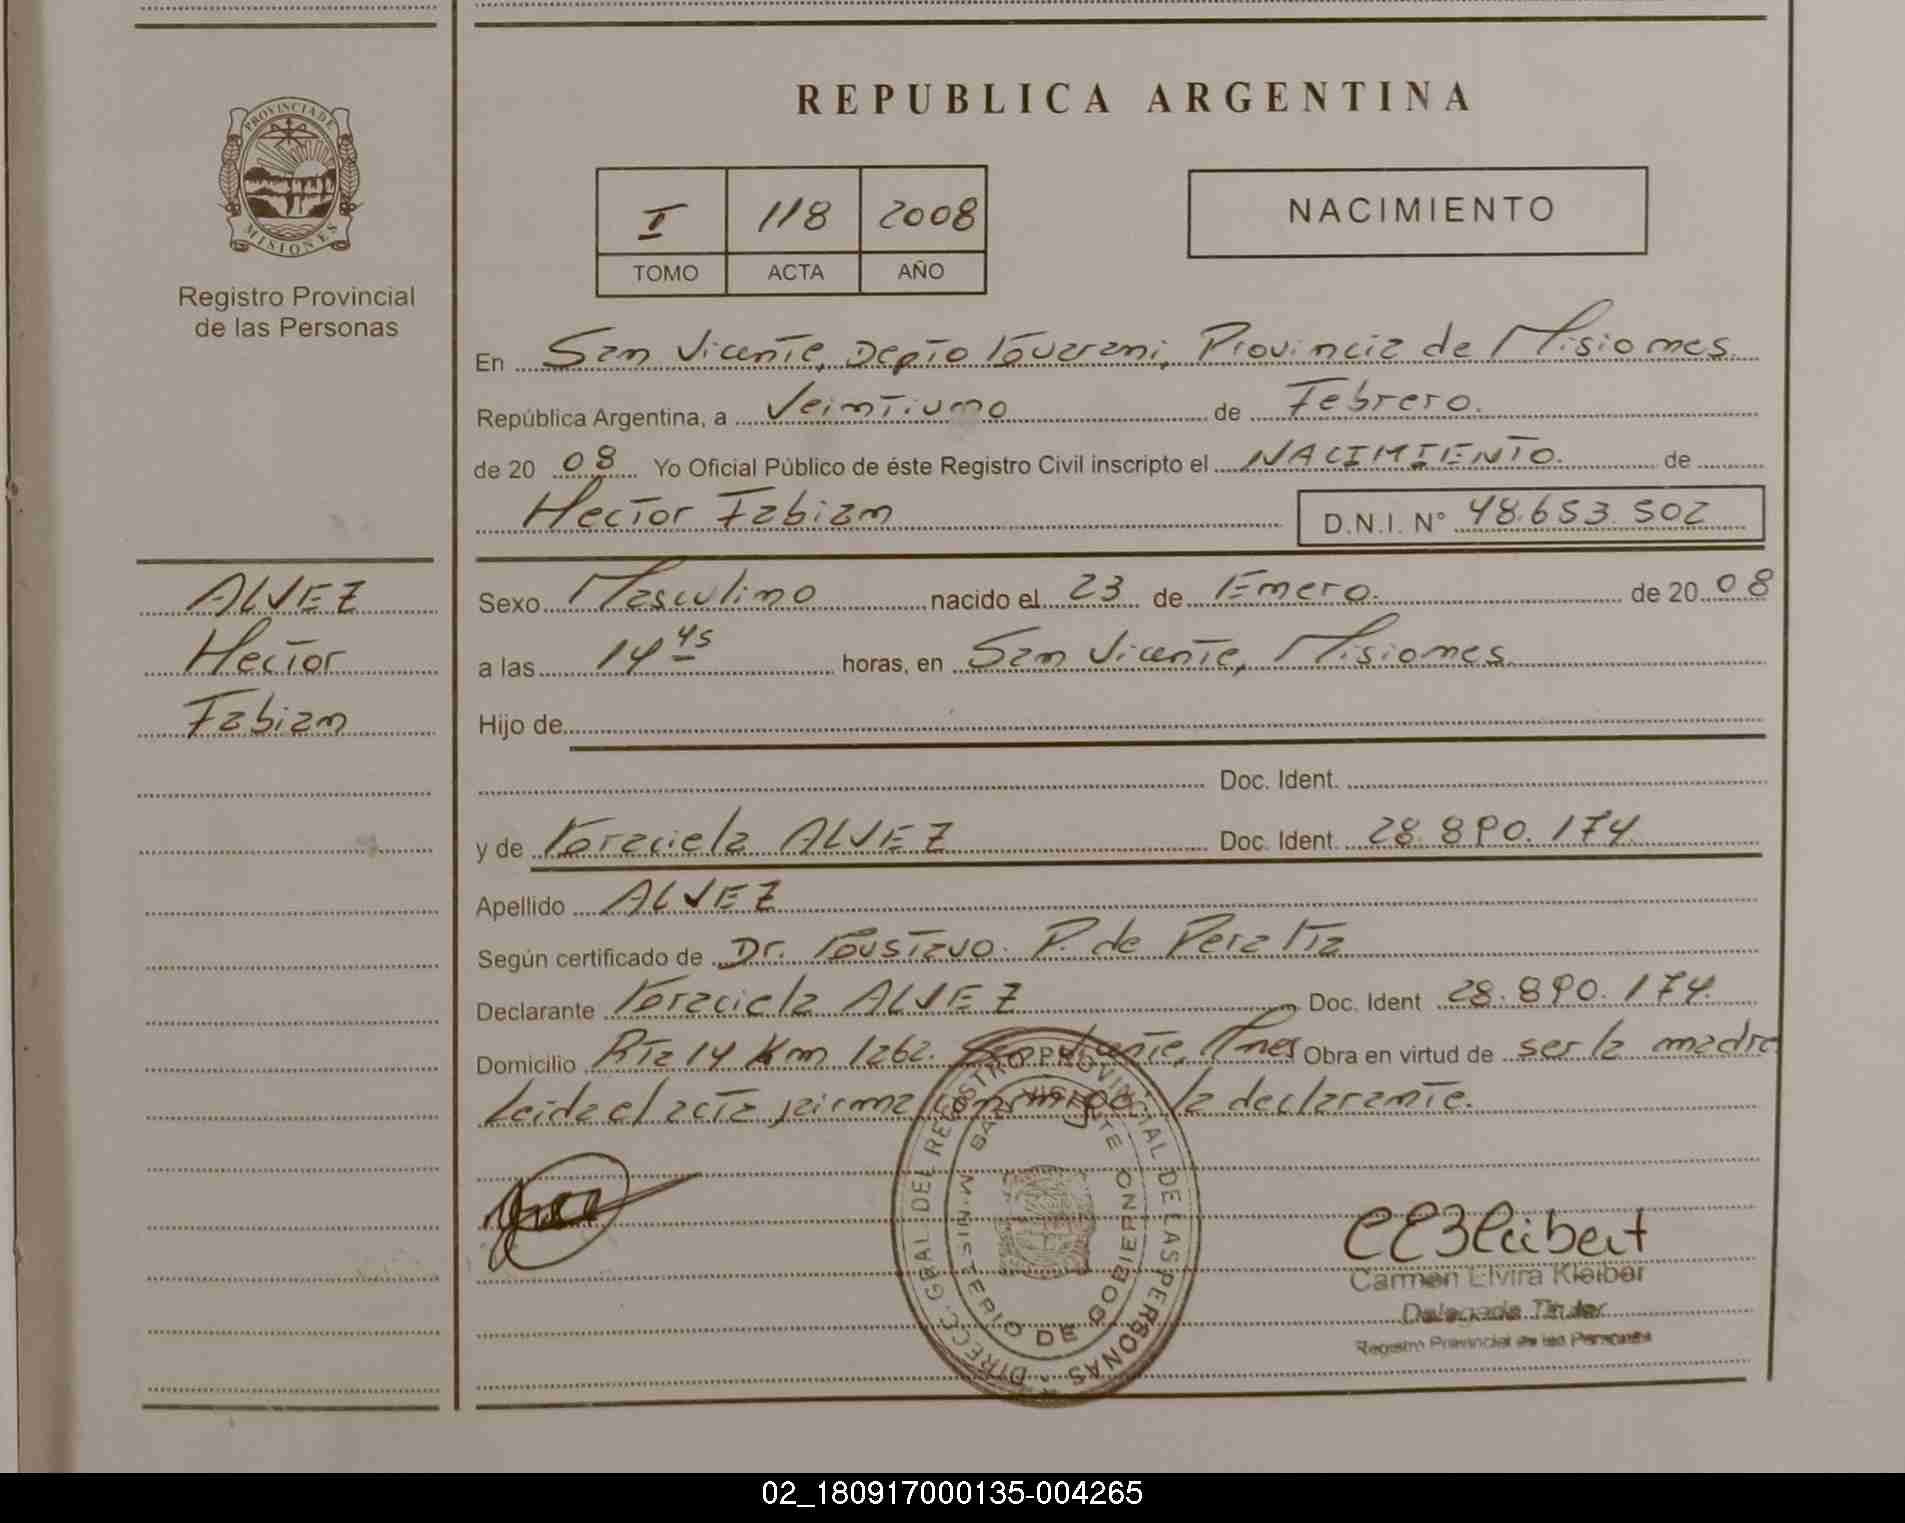 PROVINCIA DE
MISIONES
Registro Provincial
de las Personas
ALVEZ
Hector
Fabian
REPUBLICA ARGENTINA
I 118 2008
TOMO ACTA AÑO
NACIMIENTO
En San Vicente, Depto Guarani, Provincia de Misiones
República Argentina, a Veintiuno de Febrero.
de 20 08 Yo Oficial Público de éste Registro Civil inscripto el NACIMIENTO. de
Hector Fabian D.N.I. N° 48.653.502
Sexo Masculino nacido el 23 de Enero. de 20 08
a las 14 45 horas, en San Vicente, Misiones
Hijo de
Doc. Ident.
y de Graciela ALVEZ Doc. Ident. 28.890.174
Apellido ALVEZ
Según certificado de Dr. Gustavo P. de Peralta
Declarante Graciela ALVEZ Doc. Ident 28.890.174
Domicilio Rta 14 Km 1262. San Vicente, Mnes Obra en virtud de ser la madre
Leida el acta firma conmigo la declarante.
DIRECC. GRAL DEL REGISTRO PROVINCIAL DE LAS PERSONAS
SAN VICENTE
MINISTERIO DE GOBIERNO
Carmen Elvira Kleiber
Delegada Titular
Registro Provincial de las Personas
02_180917000135-004265